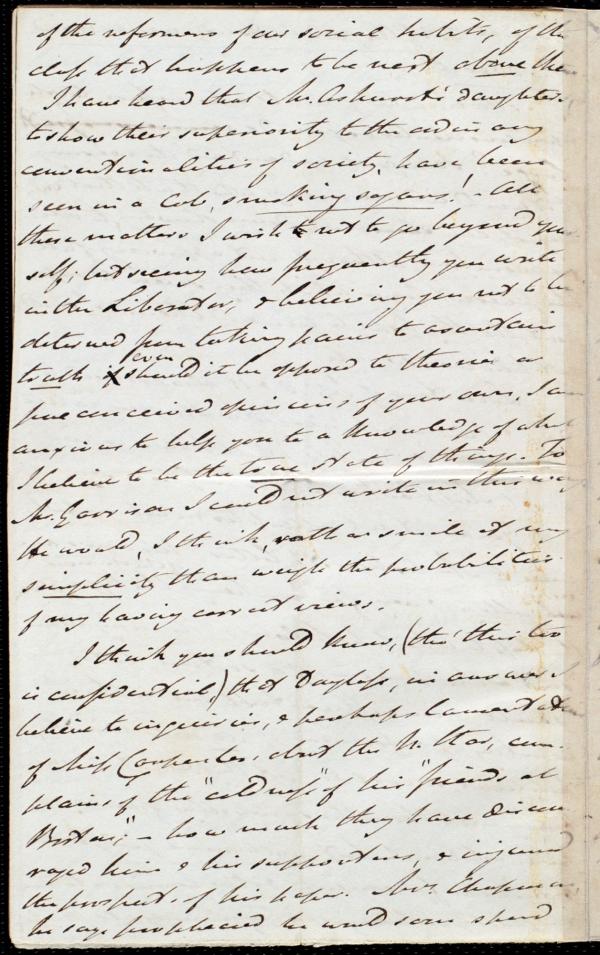 of the reformers of our social habits, of the
class that happens to be next above them
I have heard that Mr. Ashurst's daughters
to show their superiority to the ordinary
conventionalities of society, have been
seen in a Cab, smoking segars! - All
these matters I wish not to go beyond your
self; but seeing how frequently you write
in the Liberator, & believing you not to be
deterred from taking pains to ascertain
truth even should it be opposed to theories or
preconceived opinions of your own, I am
anxious to help you to a knowledge of what
I believe to be the true state of things. To
Mr. Garrison I could not write in this way
He would, I think, rather smile at my
simplicity than weigh the probabilities
of my having correct views.
I think you should know, (tho' this too
is confidential,) that Douglass, in answer I
believe to inquiries, & perhaps lamentations
of Miss Carpenter, about the N. Star, com-
plains of the "coldness" of his "friends at
Boston," - how much they have discou
raged him & his supporters, & injured
the prospects of his paper. Mrs. Chapman,
he says prophecied he would soon spend